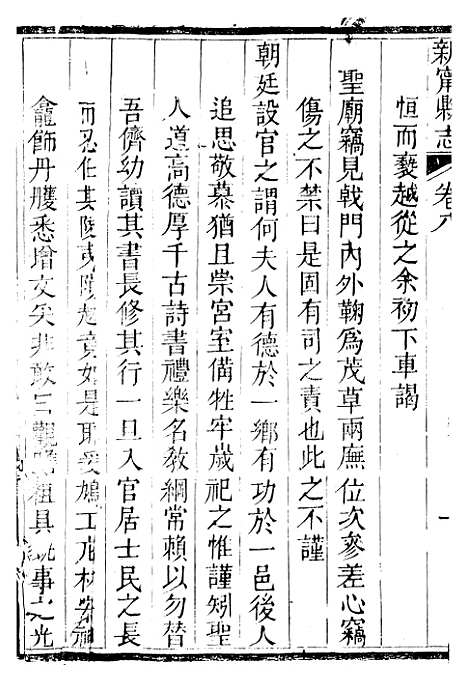 新甯縣志 卷八
恒而褻越從之余初下車謁
聖廟竊見戟門內外鞠爲茂草兩廡位次參差心竊
傷之不禁曰是固有司之責也此之不謹
朝廷設官之謂何夫人有德於一鄉有功於一邑後人
追思敬慕猶且崇宮室備牲牢歲祀之惟謹矧聖
人道高德厚千古詩書禮樂名教綱常賴以勿替
吾儕幼讀其書長修其行一旦入官居士民之長
而忍任其陵夷 竟如是耶爰鳩工庀材
龕飾丹雘悉增文矣非敢曰觀 粗具 事之光